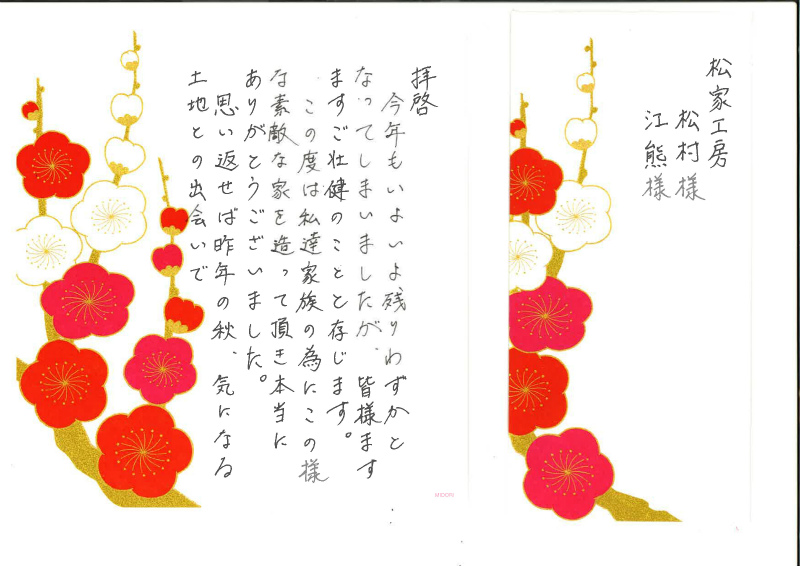 松家工房
松村様
江熊様
拝啓
今年もいよいよ残りわずかと
なってしまいましたが、皆様ます
ますご壮健のことと存じます。
この度は私達家族の為にこの様
な素敵な家を造って頂き本当に
ありがとうございました。
思い返せば昨年の秋、気になる
土地との出会いで
MIDORI